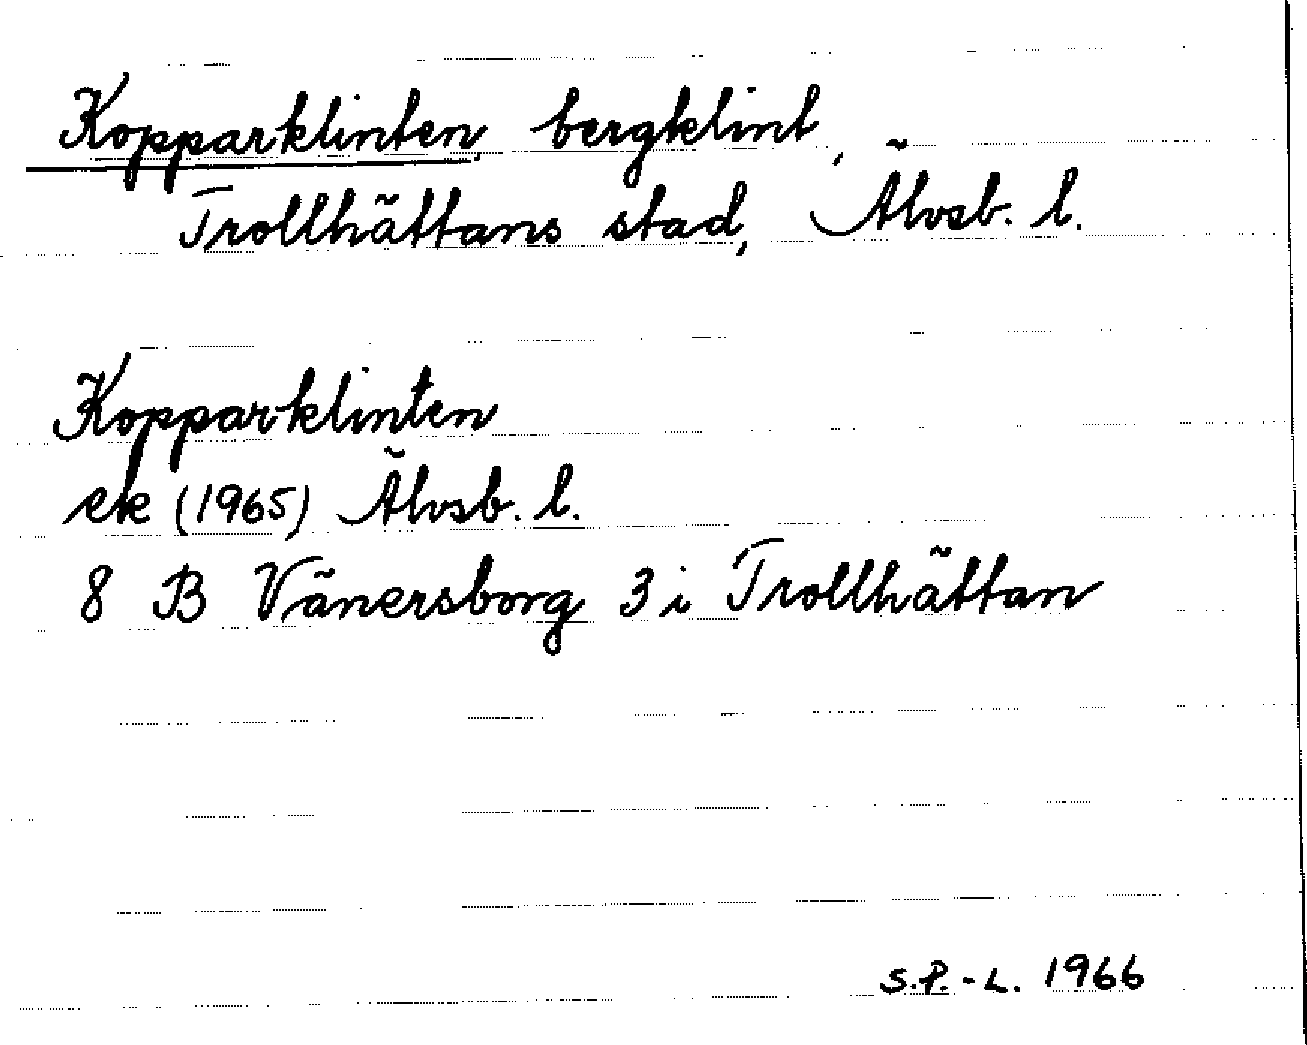 Kopparklinten, bergklint,
Trollhättans stad, Älvsb. l.
Kopparklinten
ek (1965) Älvsb. l.
8 B Vänersborg 3 i Trollhättan
S.P.-L. 1966